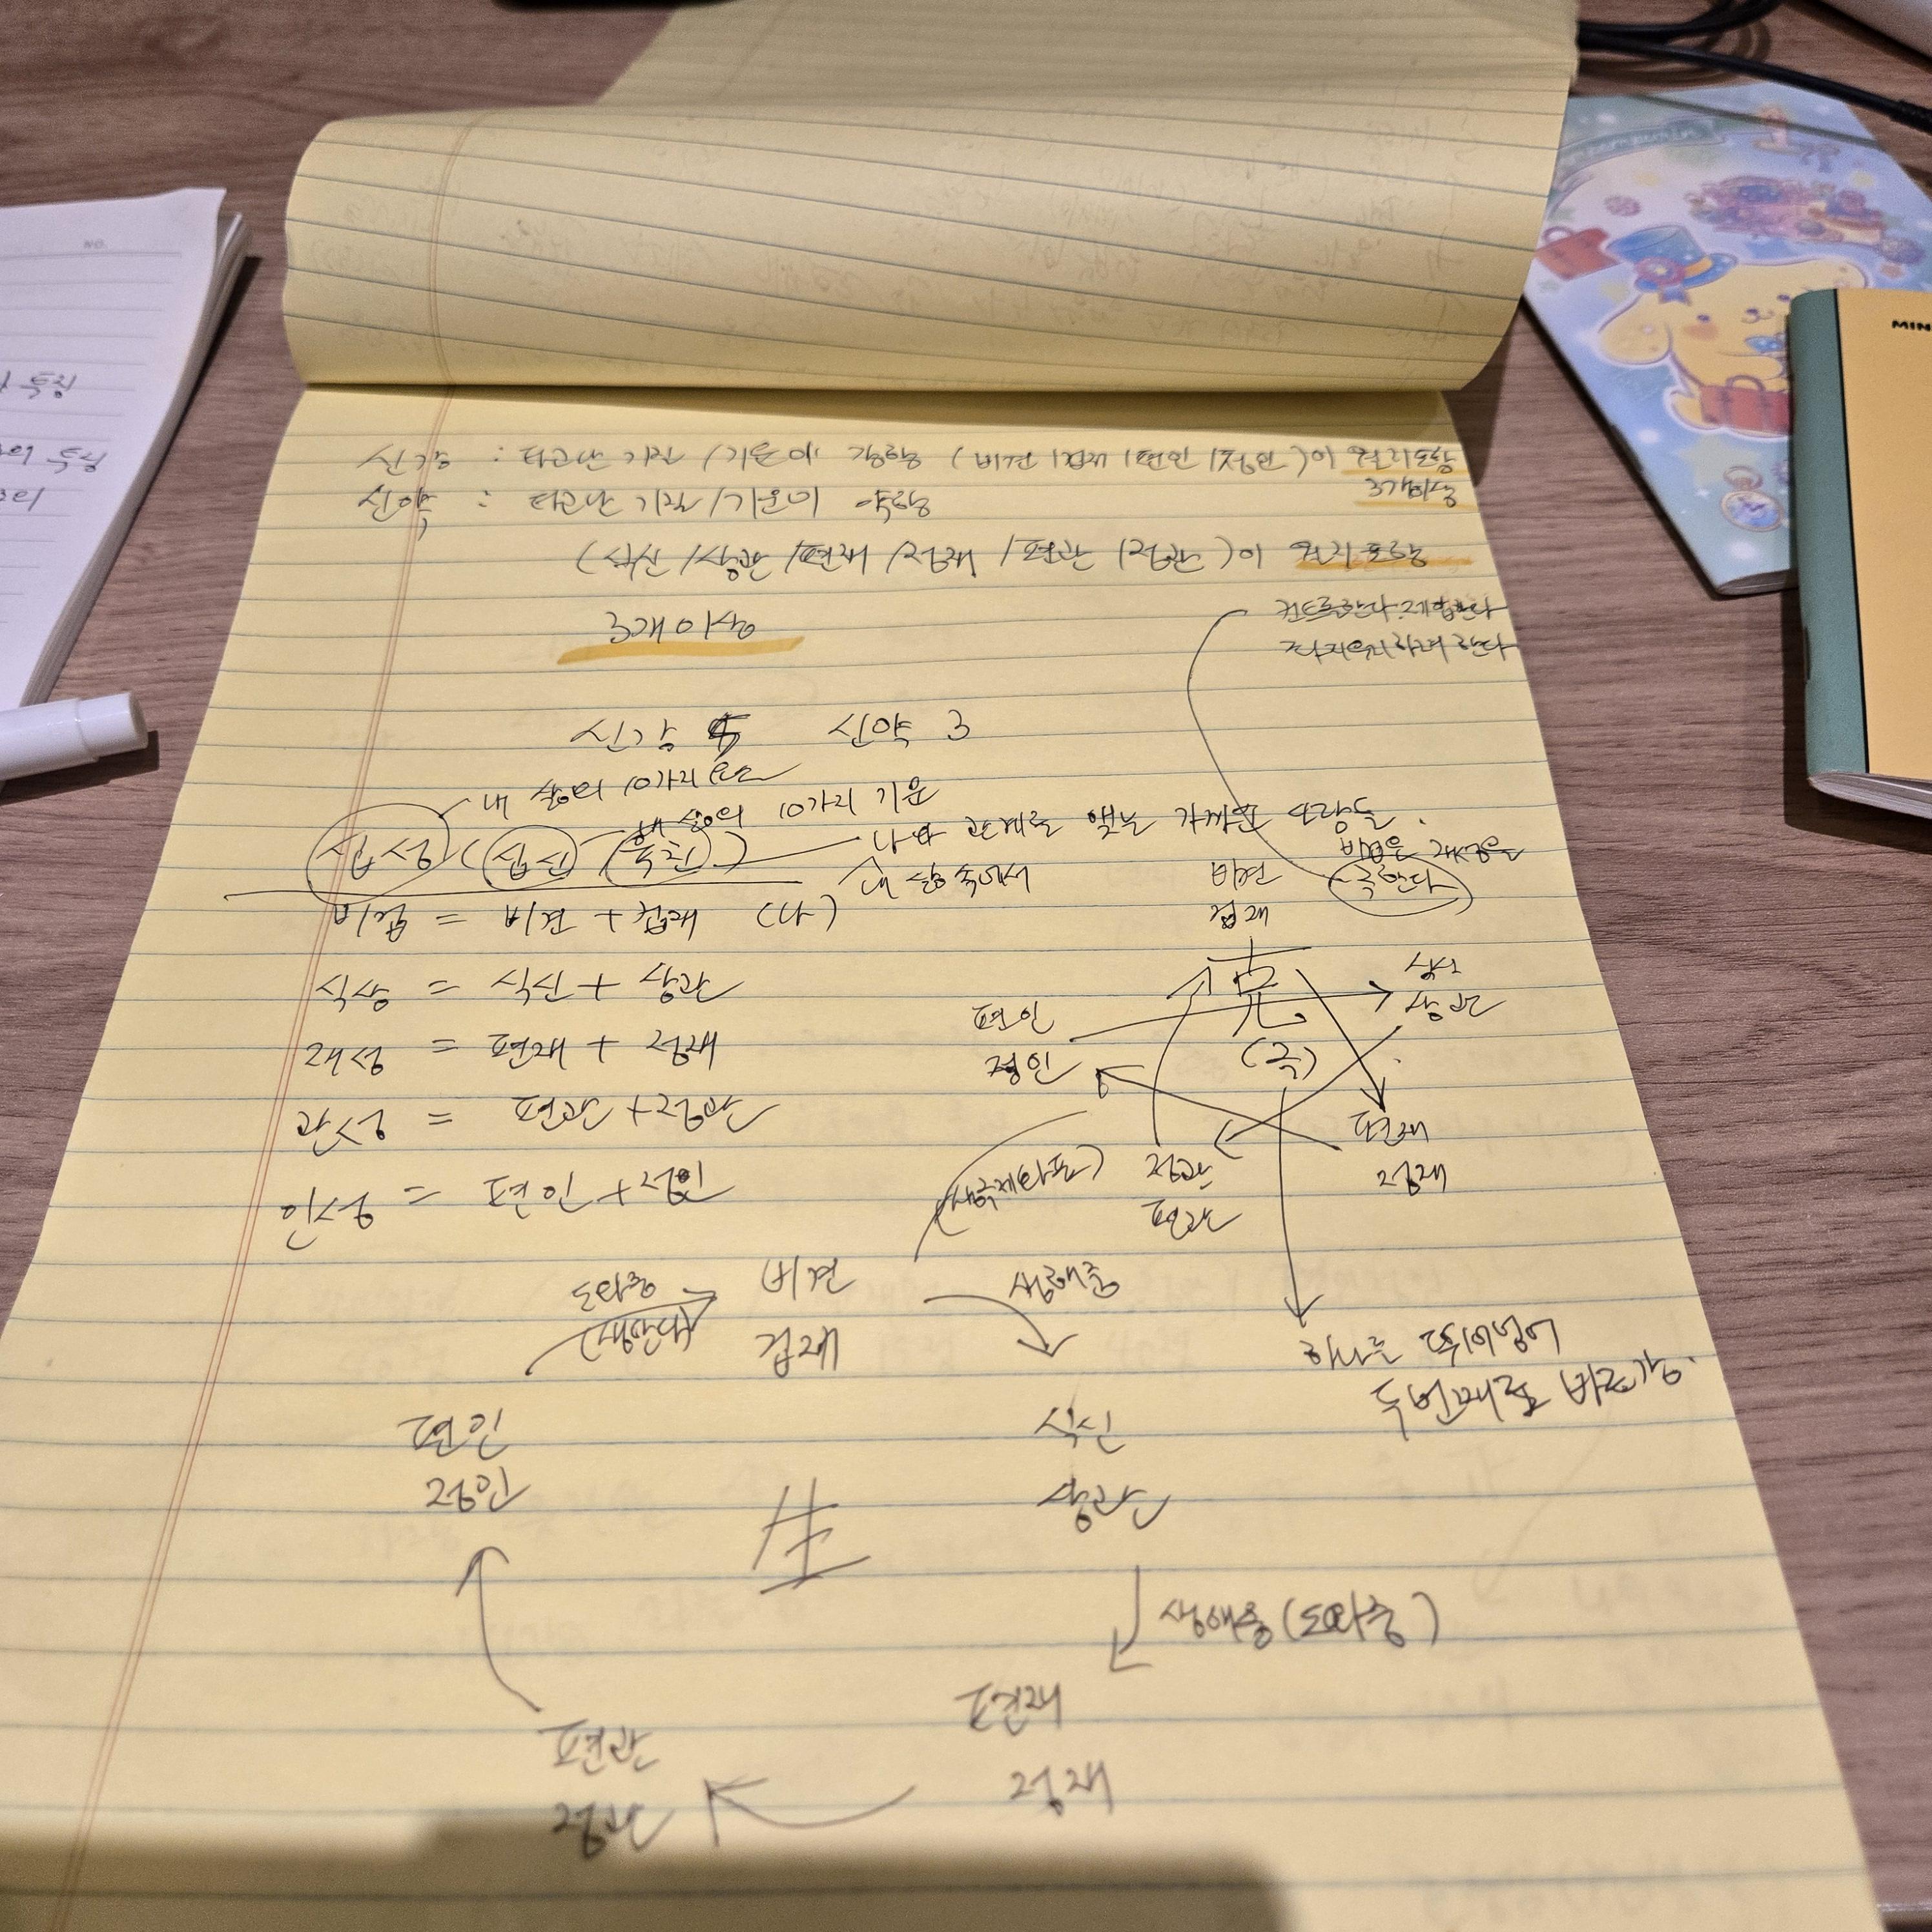 신강 : 타고난 기질/기운이 강함 (비견/겁재/편인/정인)이 월지포함
3개이상
신약 : 타고난 기질/기운이 약함
(식신/상관/편재/정재/편관/정관)이 월지포함
3개이상
컨트롤한다. 제압한다
좌지우지하려 한다
신강 5 신약 3
내 삶의 10가지
내 삶의 10가지 기운
십성 (십신/육친) 나와 관계를 맺는 가까운 사람들.
내 삶 속에서
비겁은 재성을
극한다
비겁 = 비견 + 겁재 (나)
식상 = 식신 + 상관
재성 = 편재 + 정재
관성 = 편관 + 정관
인성 = 편인 + 정인
비견
겁재
克
(극)
식신
상관
편인
정인
편재
정재
정관
편관
하나를 뛰어넘어
두번째로 바로감.
도와줌
비견
겁재
생해줌
편인
정인
식신
상관
生
생해줌(도와줌)
편재
정재
편관
정관
NO.
특징
의 특징
MIN